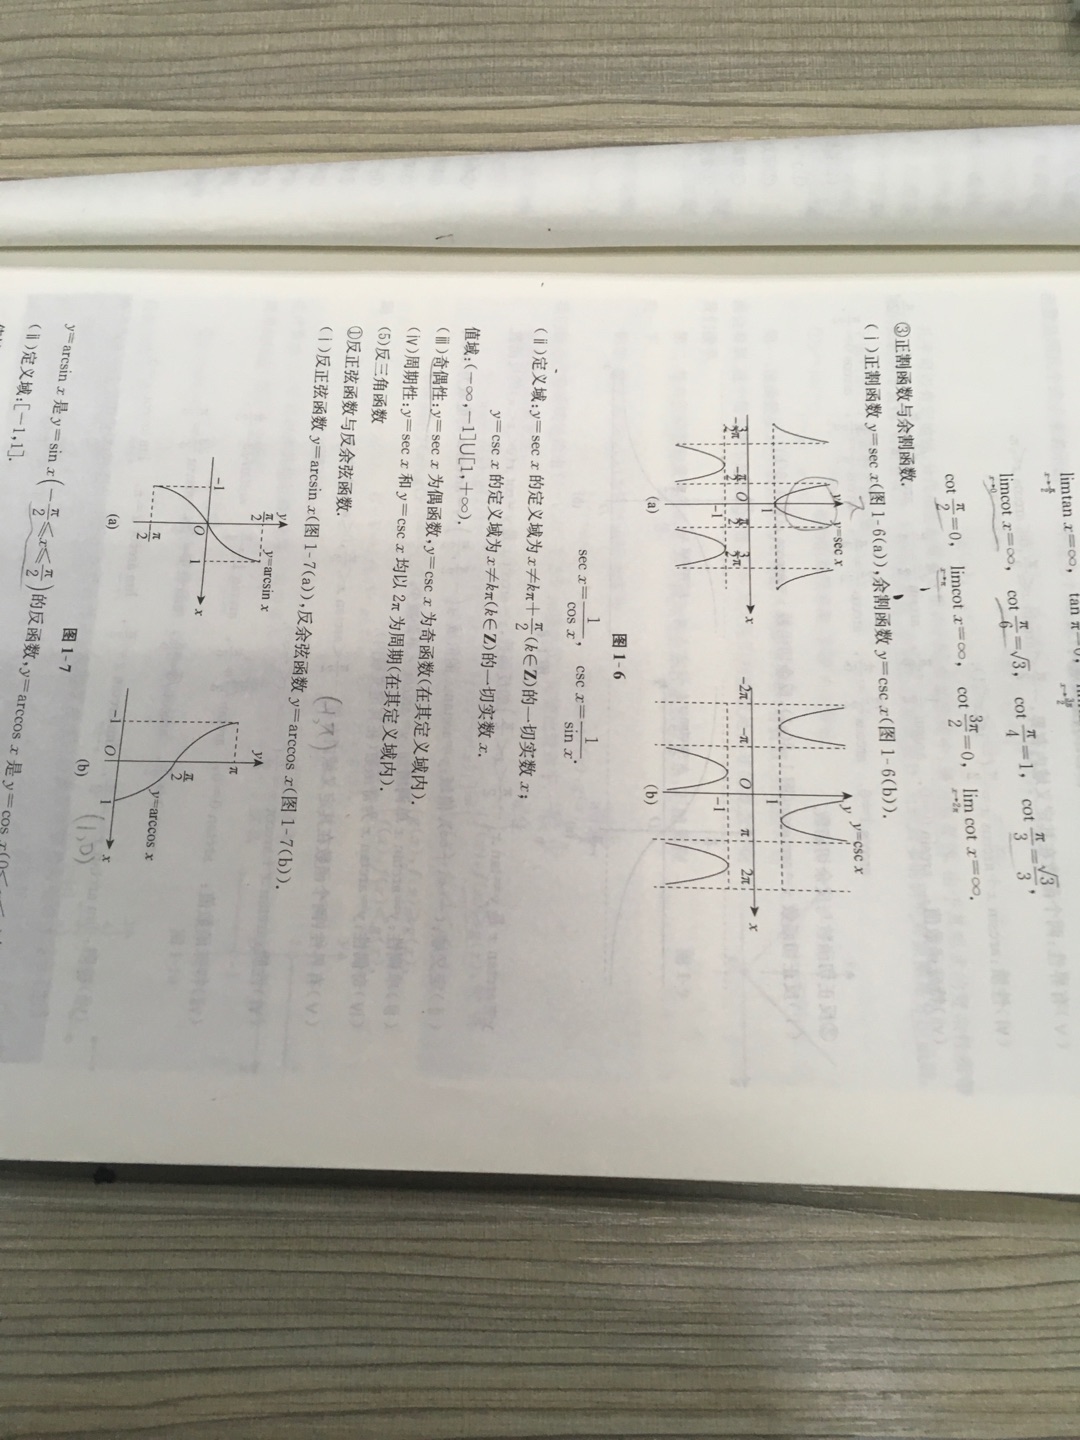 lim tan x=∞, tan π=0,
x→π/2
lim cot x=∞, cot π/6=√3, cot π/4=1, cot π/3=√3/3,
x→0
cot π/2=0, lim cot x=∞, cot 3π/2=0, lim cot x=∞.
x→π x→2π
③正割函数与余割函数.
(ⅰ)正割函数 y=sec x(图 1-6(a)),余割函数 y=csc x(图 1-6(b)).
y y=sec x
1
-3/2π -π/2 O π/2 3/2π x
-1
(a)
y y=csc x
1
-2π -π O π 2π x
-1
(b)
图 1-6
sec x=1/cos x, csc x=1/sin x.
(ⅱ)定义域:y=sec x 的定义域为 x≠kπ+π/2(k∈Z)的一切实数 x;
y=csc x 的定义域为 x≠kπ(k∈Z)的一切实数 x.
值域:(-∞,-1]∪[1,+∞).
(ⅲ)奇偶性:y=sec x 为偶函数,y=csc x 为奇函数(在其定义域内).
(ⅳ)周期性:y=sec x 和 y=csc x 均以 2π 为周期(在其定义域内).
(5)反三角函数
①反正弦函数与反余弦函数.
(ⅰ)反正弦函数 y=arcsin x(图 1-7(a)),反余弦函数 y=arccos x(图 1-7(b)).
y
π/2 y=arcsin x
-1 O 1 x
-π/2
(a)
(-1,π)
y
π
π/2 y=arccos x
-1 O 1 x
(1,0)
(b)
图 1-7
y=arcsin x 是 y=sin x(-π/2≤x≤π/2)的反函数,y=arccos x 是 y=cos x(0≤
(ⅱ)定义域:[-1,1].